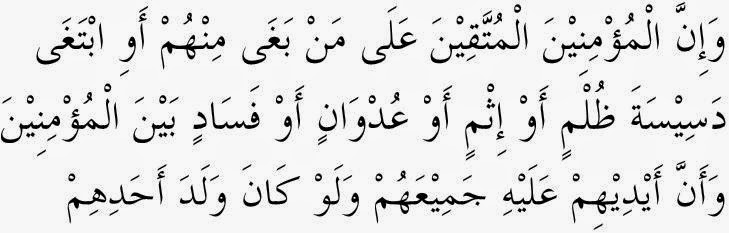 وَإِنَّ الْمُؤْمِنِيْنَ الْمُتَّقِيْنَ عَلَى مَنْ بَغَى مِنْهُمْ أَوِ ابْتَغَى
دَسِيْسَةَ ظُلْمٍ أَوْ إِثْمٍ أَوْ عُدْوَانٍ أَوْ فَسَادٍ بَيْنَ الْمُؤْمِنِيْنَ
وَأَنَّ أَيْدِيْهِمْ عَلَيْهِ جَمِيْعَهُمْ وَلَوْ كَانَ وَلَدَ أَحَدِهِمْ